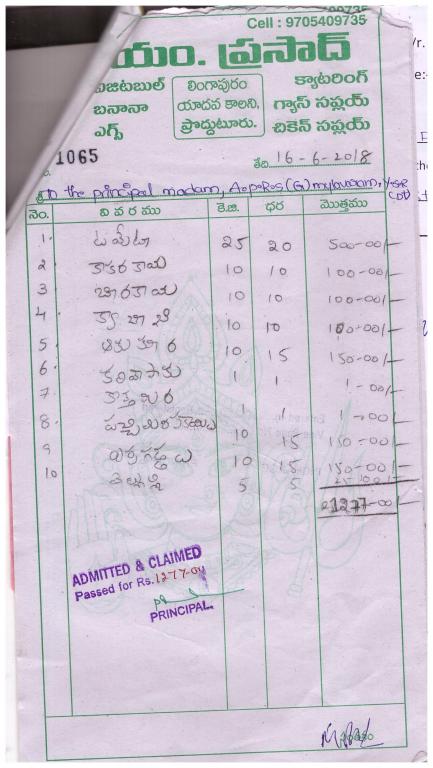 Cell : 9705409735
యం. ప్రసాద్
విజిటబుల్
బనానా
ఎగ్స్
లింగాపురం
యాదవ కాలని,
ప్రొద్దుటూరు.
క్యాటరింగ్
గ్యాస్ సప్లయ్
చికెన్ సప్లయ్
1065
తేది 16-6-2018
To the principal madam,
నెం. వివరము కె.జి. ధర మొత్తము
1. టమేటా 25 20 500-00/-
2 కాకర కాయ 10 10 100-00/-
3 బీరకాయ 10 10 100-00/-
4 క్యాబేజి 10 10 100-00/-
5 ఆకు కూర 10 15 150-00/-
6 కరివేపాకు 1 1 1-00/-
7 కొత్తమిర 1 1 1-00/-
8. పచ్చిమిరపకాయలు 10 15 150-00/-
9 ఎర్రగడ్డలు 10 15 150-00/-
10 5 5
1277-00/-
ADMITTED & CLAIMED
Passed for Rs. 1277-00
PRINCIPAL